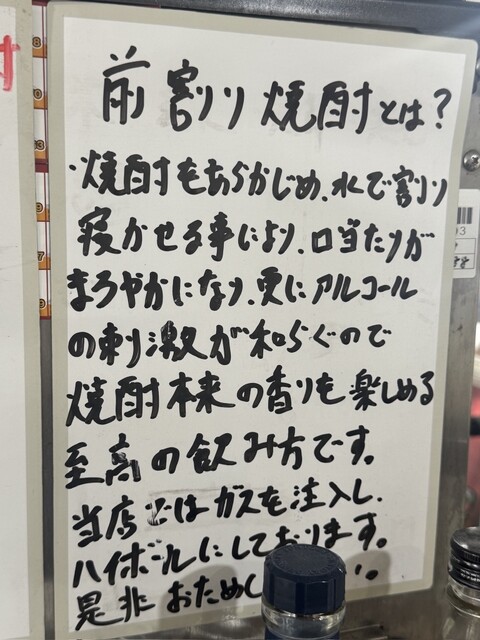 前割り焼酎とは?
・焼酎をあらかじめ、水で割り
寝かせる事により、口当たりが
まろやかになり、更にアルコール
の刺激が和らぐので
焼酎本来の香りも楽しめる
至高の飲み方です。
当店ではガスを注入し、
ハイボールにしております。
是非おためし